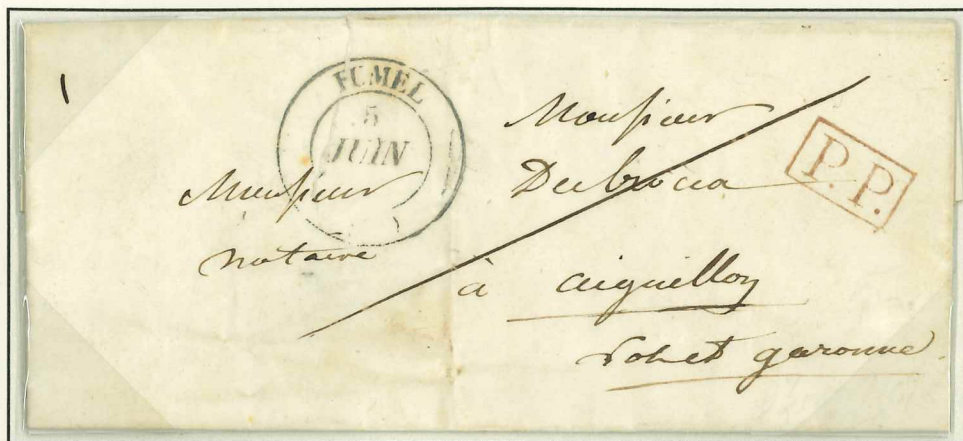 FUMEL
5
JUIN
P.P.
Monsieur
Dubrocia
Monsieur
notaire
à aiguillon
Lot et garonne